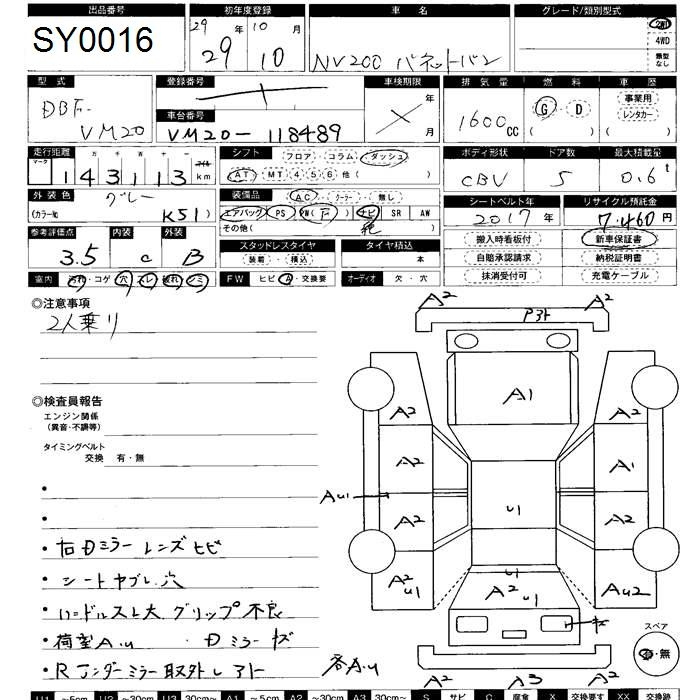 出品番号 初年度登録 車名 グレード/類別型式
SY0016 29年 10月 29 10 NV200 バネットバン 2WD 4WD 類型なし
型式 登録番号 車検期限 排気量 燃料 車歴
DBF-VM20 年 月 1600cc G・D ( ) 事業用 レンタカー ( )
車台番号 VM20-118489
走行距離 シフト フロア・コラム・ダッシュ ボディ形状 ドア数 最大積載量
マーク 十万千百十一 マイル
143113 km AT・MT 4 5 6 他 ( ) CBV 5 0.6t
外装色 グレー 装備品 AC・クーラー・無し シートベルト年 リサイクル預託金
(カラーNo K51) エアバッグ PS PW(F) ナビ SR AW 2017年 7,460円
その他( )
参考評価点 内装 外装 スタッドレスタイヤ タイヤ積込 搬入時看板付 新車保証書
3.5 C B 装着・積込 本 自賠承認請求 納税証明書
室内 汚れ・コゲ・穴・スレ・破れ・シミ FW ヒビ・A・交換要 オーディオ 欠・穴 抹消受付可 充電ケーブル
◎注意事項
2人乗り
◎検査員報告
エンジン関係
(異音・不調等)
タイミングベルト
交換 有・無
・右Dミラーレンズヒビ
・シートヤブレ穴
・ハンドルスレ大 グリップ不良
・荷室A.u Dミラーキズ
・Rアンダーミラー取外し アト
各A.u
A2 A2
Pアト
A1
A2 A2
A2 A1
Au1
A2 U1 A2
A2 U1 A2 U1 Au2
キズ
スペア
有・無
A2 A3 A2
U1 ~5cm U2 ~30cm U3 30cm~ A1 ~5cm A2 ~30cm A3 30cm~ S サビ C 腐食 X 交換要す XX 交換跡